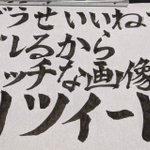 どうせいいね
バレるから
ッチな画像
リツイー